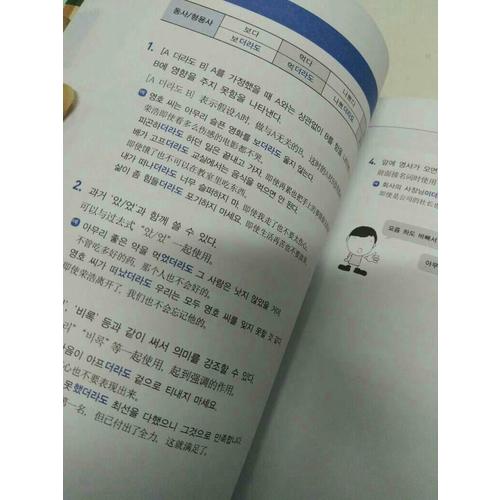 동사/형용사
보다
보더라도
먹다
먹더라도
나쁘다
나쁘더라도
1. [A 더라도 B] A를 가정했을 때 A와는 상관없이 B를 함
B에 영향을 주지 못함을 나타낸다.
[A 더라도 B] 表示假设A时，做与A无关的B，
영호 씨는 아무리 슬픈 영화를 보더라도 울지 않는다.
荣浩即使看多么伤感的电影都不哭。
피곤하더라도 하던 일은 끝내고 가자.
배가 고프더라도 교실에서는 음식을 먹으면 안 된다.
即使饿了也不可以在教室里吃东西。
내가 떠나더라도 너무 슬퍼하지 마.
即使我走了也不要太伤心。
삶이 좀 힘들더라도 포기하지 마세요.
即使生活再苦也不要放弃。
2. 과거 '았/었'과 함께 쓸 수 있다.
可以与过去式 "았/었" 一起使用。
아무리 좋은 약을 먹었더라도 그 사람은 낫지 않았을 거야.
不管吃多好的药，那个人也不会好的。
영호 씨가 떠났더라도 우리는 모두 영호 씨를 잊지 못할 것 같다.
即使荣浩离开了，我们也不会忘记他的。
'비록' 등과 같이 써서 의미를 강조할 수 있다.
"비록" 等一起使用，起到强调的作用。
음이 아프더라도 겉으로 티내지 마세요.
心也不要表现出来。
못했더라도 최선을 다했으니 그것으로 만족합니다.
第一名，但已付出了全力，这就满足了。
4. 앞에 명사가 오면
前面接名词时使用
회사의 사장님이더
即使是公司的社长也
요즘 하도 바빠서
아무